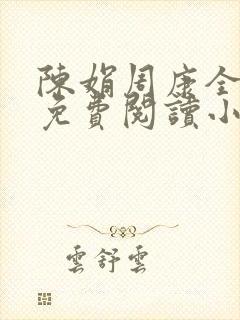 陳娟周康全
免費閱讀小
雲舒雲